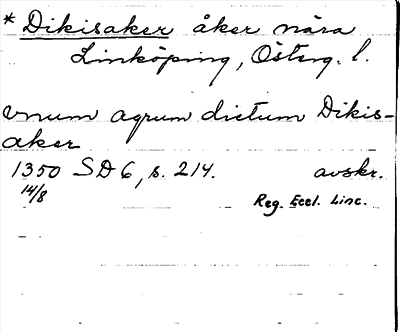 * Dikisaker åker nära
Linköping, Österg. l.
vnum agrum dictum Dikis-
aker
1350 SD 6, s. 214. avskr.
14/8 Reg. Eccl. Linc.